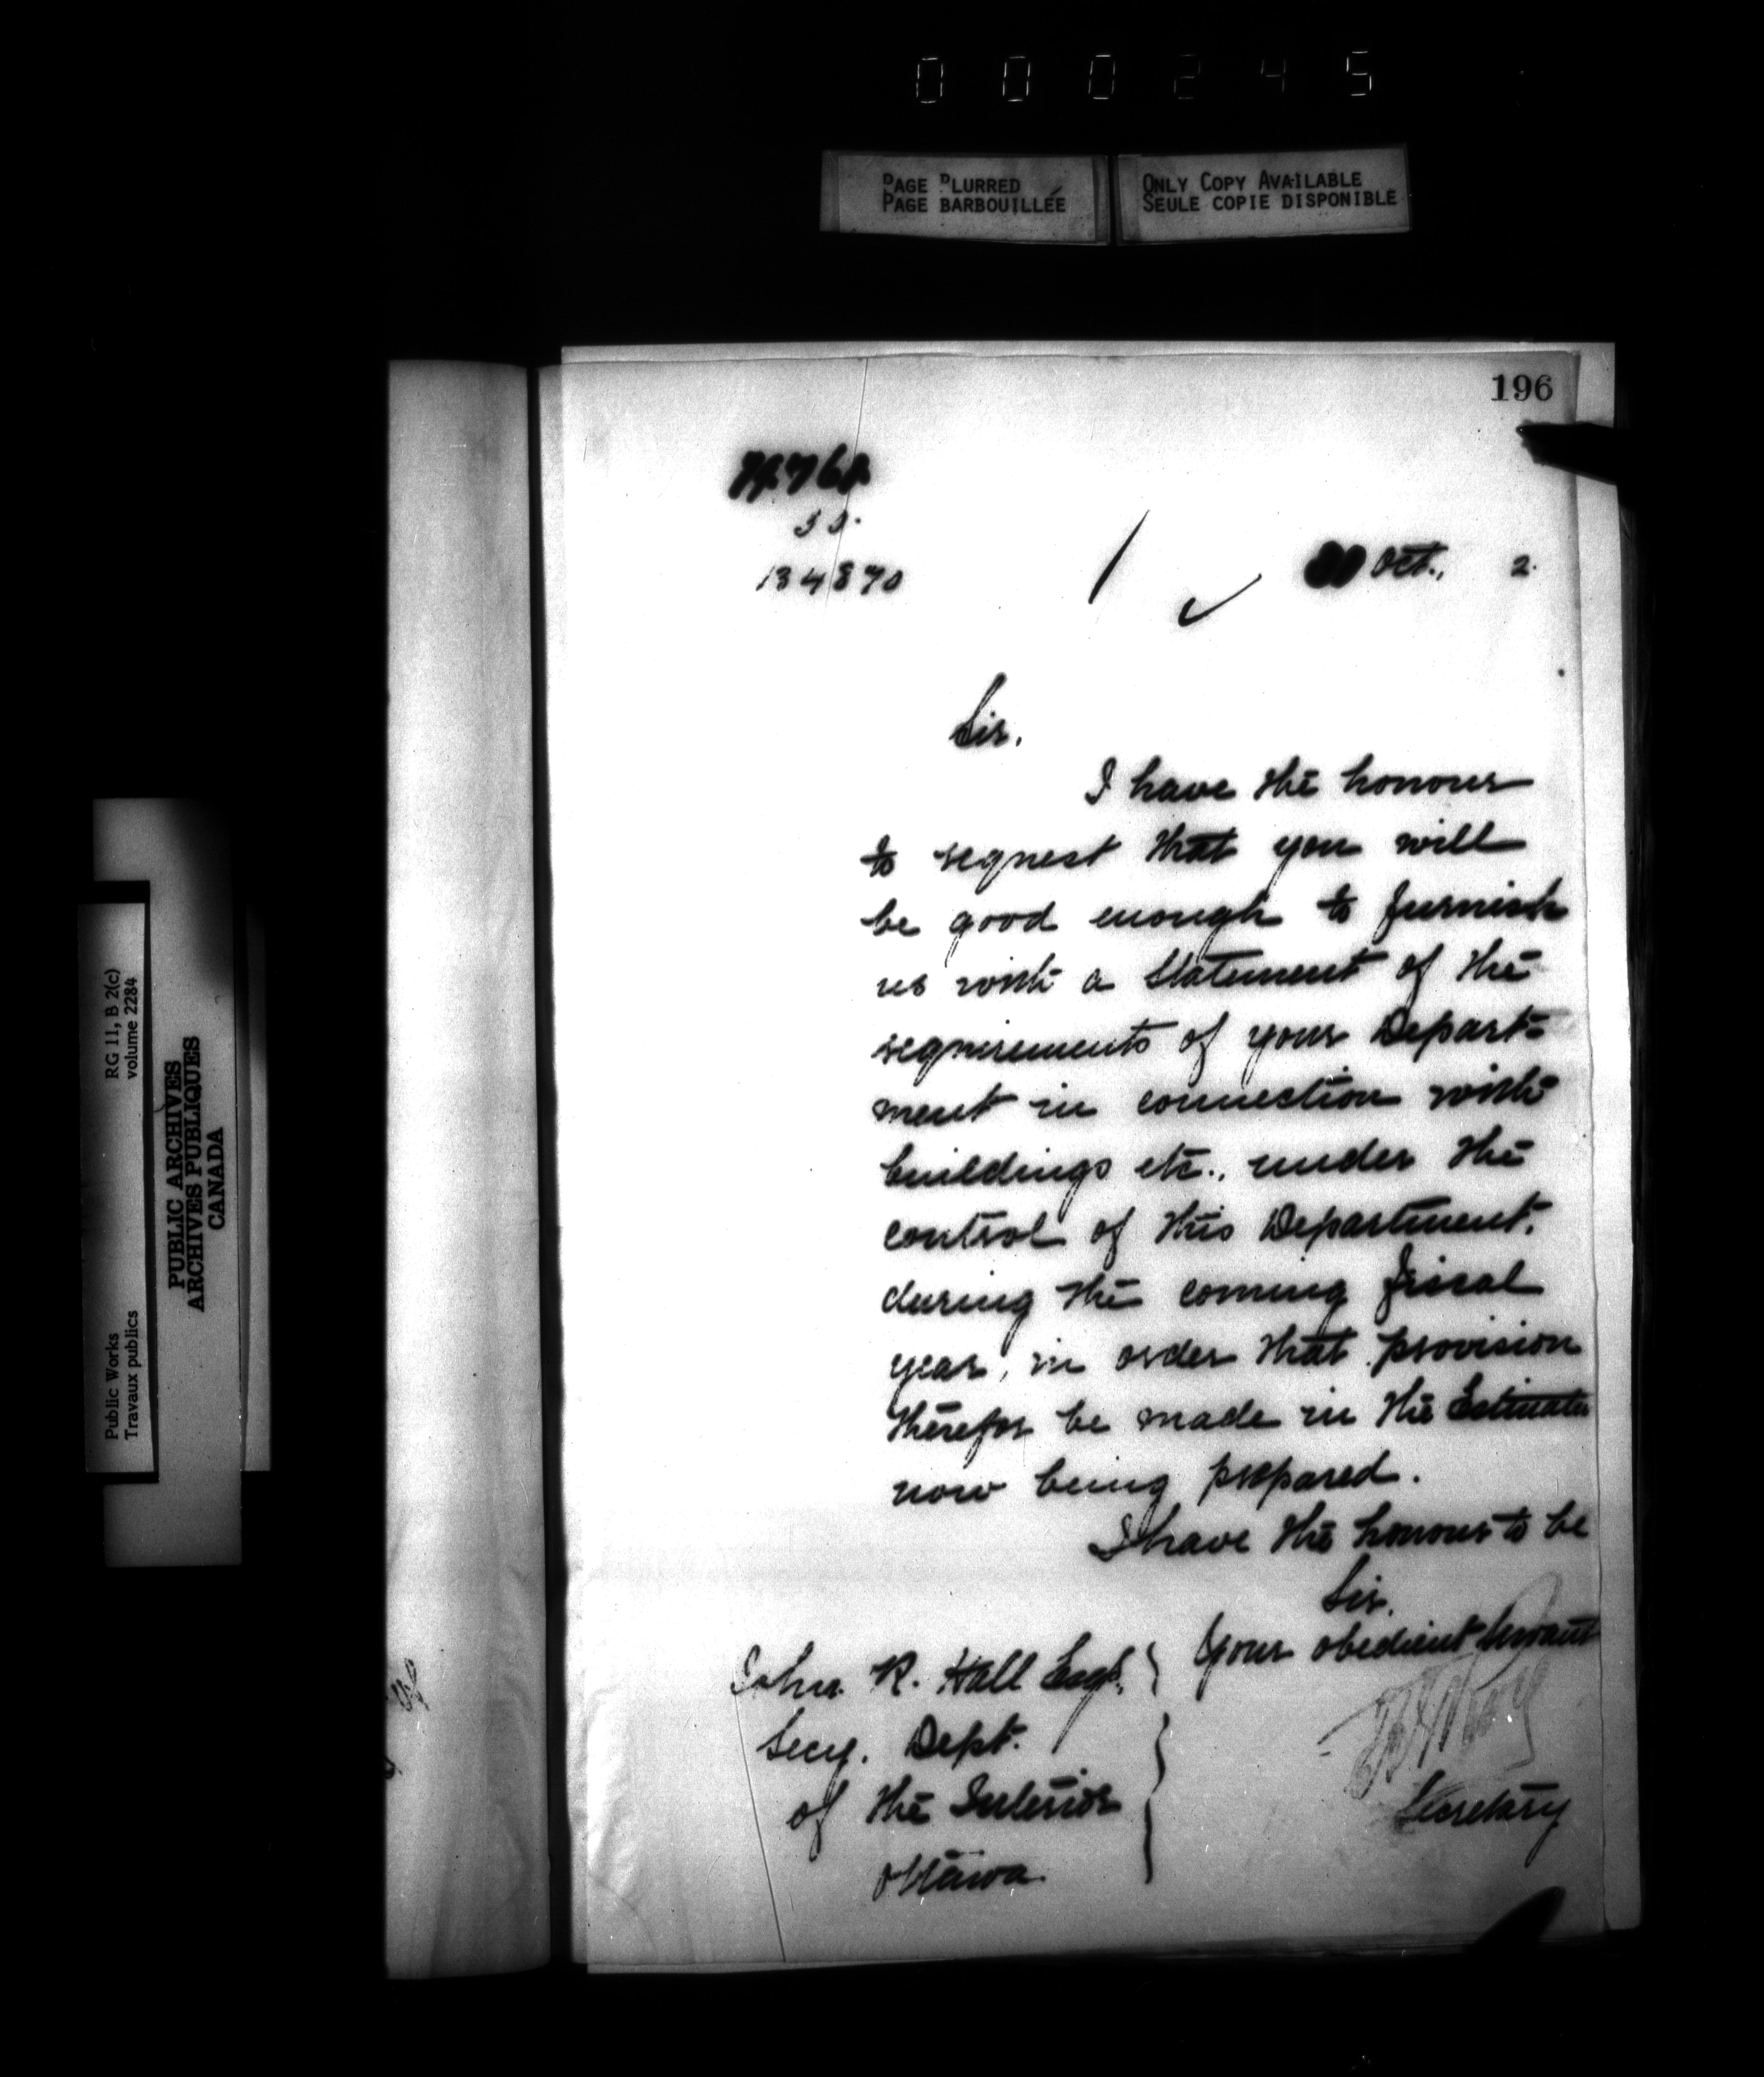 000245
PAGE BLURRED
PAGE BARBOUILLÉE
ONLY COPY AVAILABLE
SEULE COPIE DISPONIBLE
196
134870
Oct., 2.
Sir,
I have the honour
to request that you will
be good enough to furnish
us with a Statement of the
requirements of your Depart=
ment in connection with
buildings etc., under the
control of this Department,
during the coming fiscal
year, in order that provision
therefor be made in the Estimates
now being prepared.
I have the honour to be
Sir,
Your obedient Servant
Secretary
John R. Hall Esq.
Secy. Dept.
of the Interior
Ottawa.
Public Works
Travaux publics
RG 11, B 2(c)
volume 2284
PUBLIC ARCHIVES
ARCHIVES PUBLIQUES
CANADA